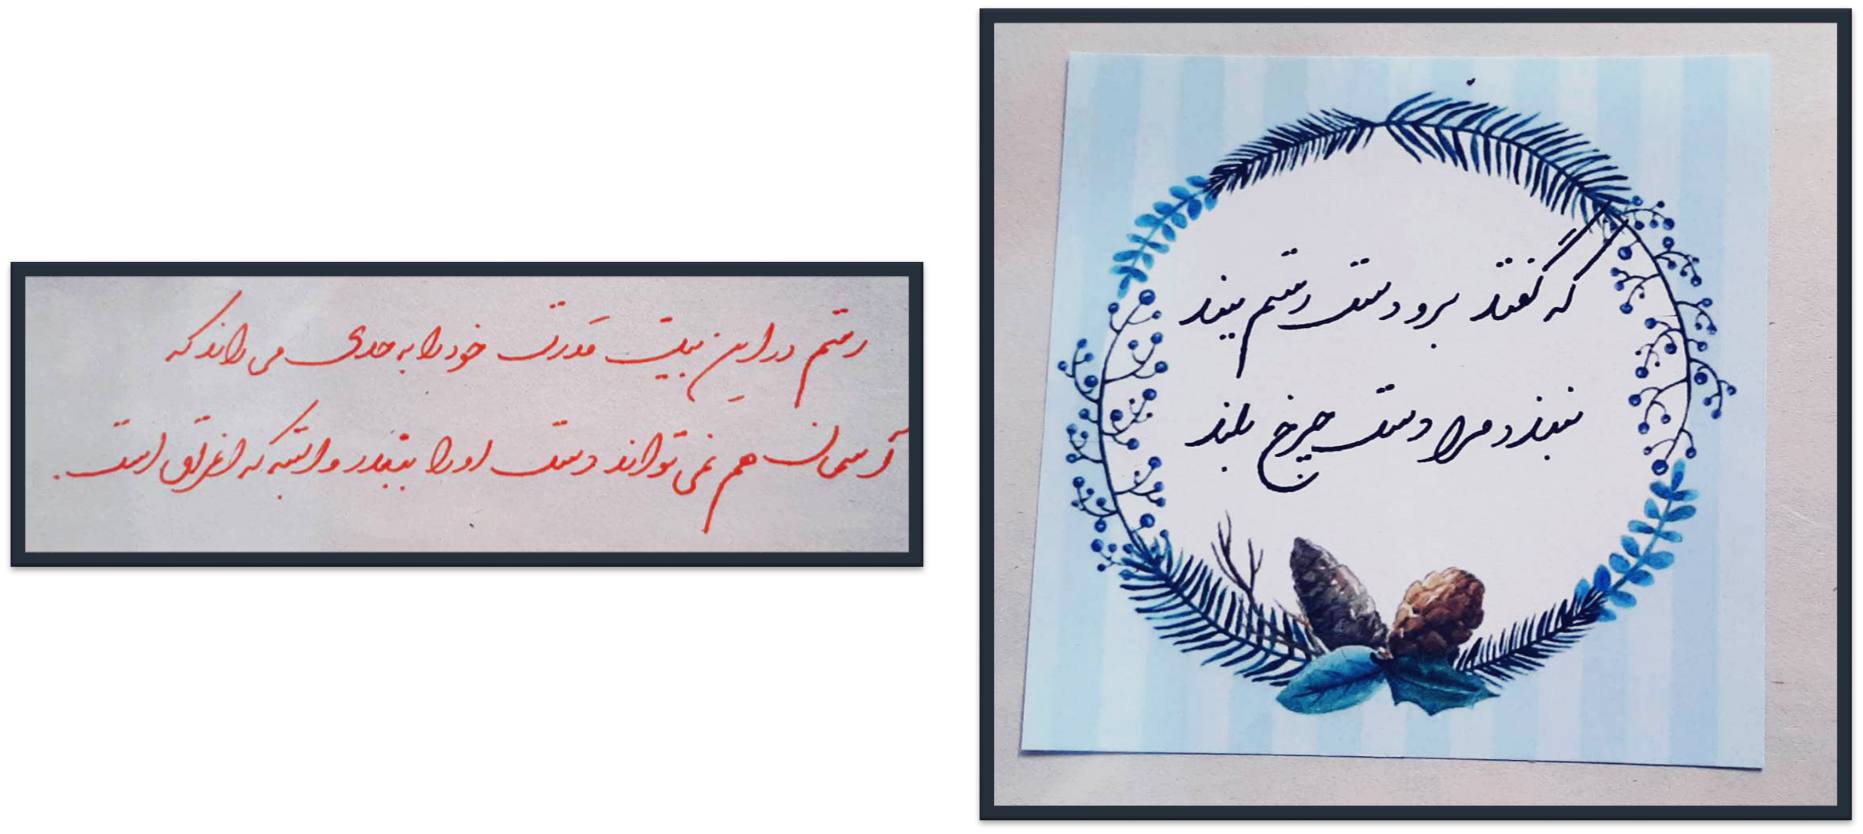 که گفتت برو دست رستم ببند
نبندد مرا دست چرخ بلند
رستم در این بیت قدرت خود را به حدی می داند که
آسمان هم نمی تواند دست او را ببندد و البته که اغراق است.